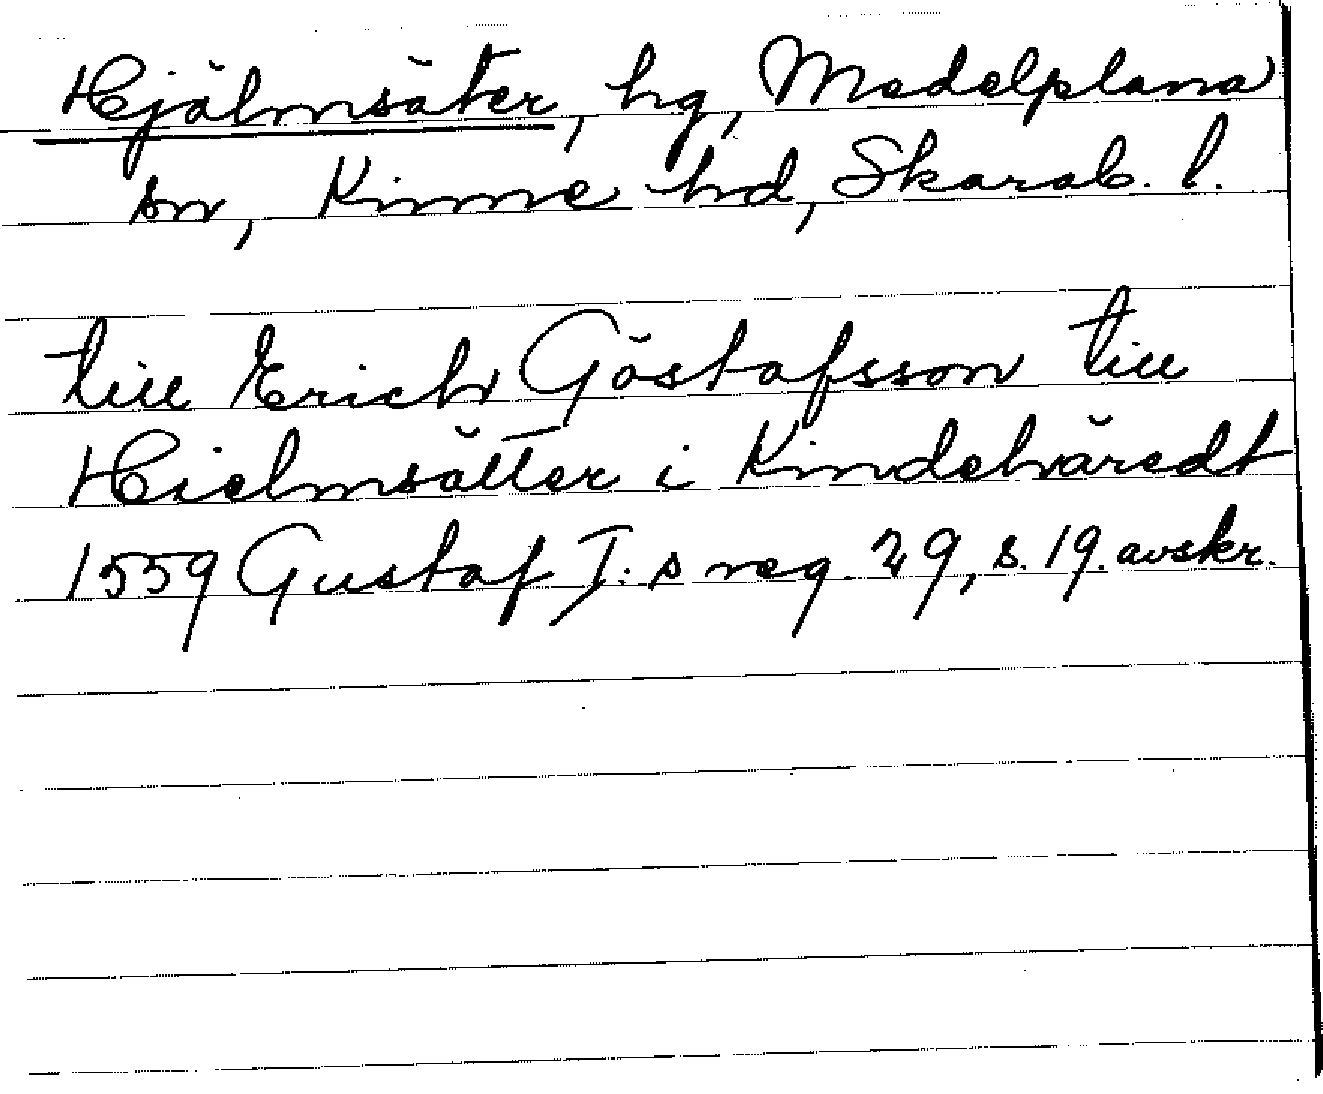 Hjälmsäter, hg, Medelplana
sn, Kinne hd, Skarab. l.
till Erich Göstafsson till
Hielmsätter i Kindehäredt
1559 Gustaf I:s reg 29, s. 19. avskr.